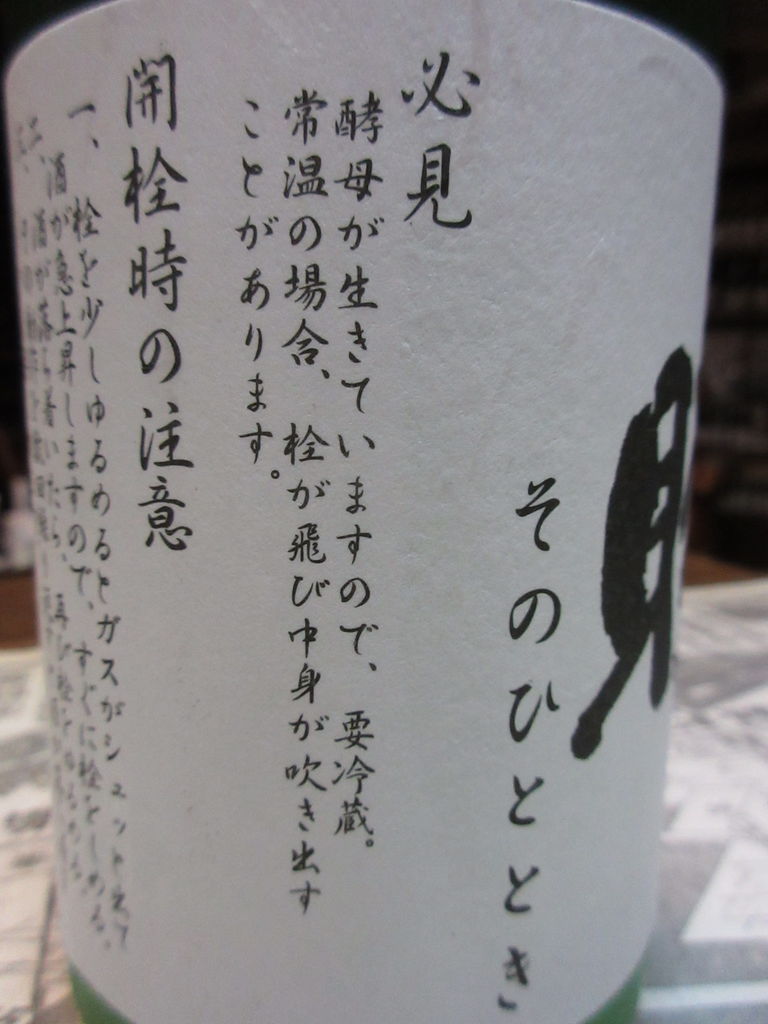 そのひととき
必見
酵母が生きていますので、要冷蔵。
常温の場合、栓が飛び中身が吹き出す
ことがあります。
開栓時の注意
一、栓を少しゆるめるとガスがシュッと出て
酒が急上昇しますので、すぐに栓をしめる。
二、酒が落ち着いたら、再び栓をゆるめる